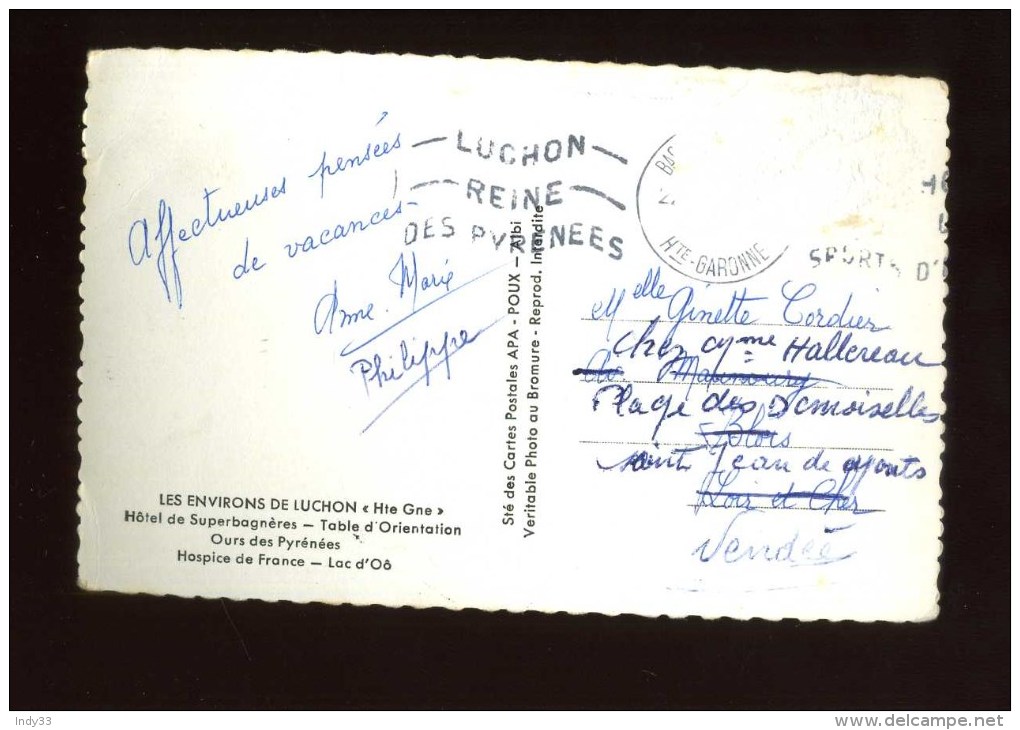 Affectueuses pensées
de vacances!
Anne. Marie
Philippe
LUCHON
REINE
DES PYRENEES
HTE-GARONNE
SPORTS D'
LES ENVIRONS DE LUCHON « Hte Gne »
Hôtel de Superbagnères — Table d'Orientation
Ours des Pyrénées
Hospice de France — Lac d'Oô
Sté des Cartes Postales APA - POUX - Albi
Veritable Photo au Bromure - Reprod. Interdite
Melle Ginette Cordier
Chez Mme Hallereau
Maunoury
Plage des Demoiselles
Blois
saint Jean de Monts
Loir et Cher
Vendée
Indy33
www.delcampe.net